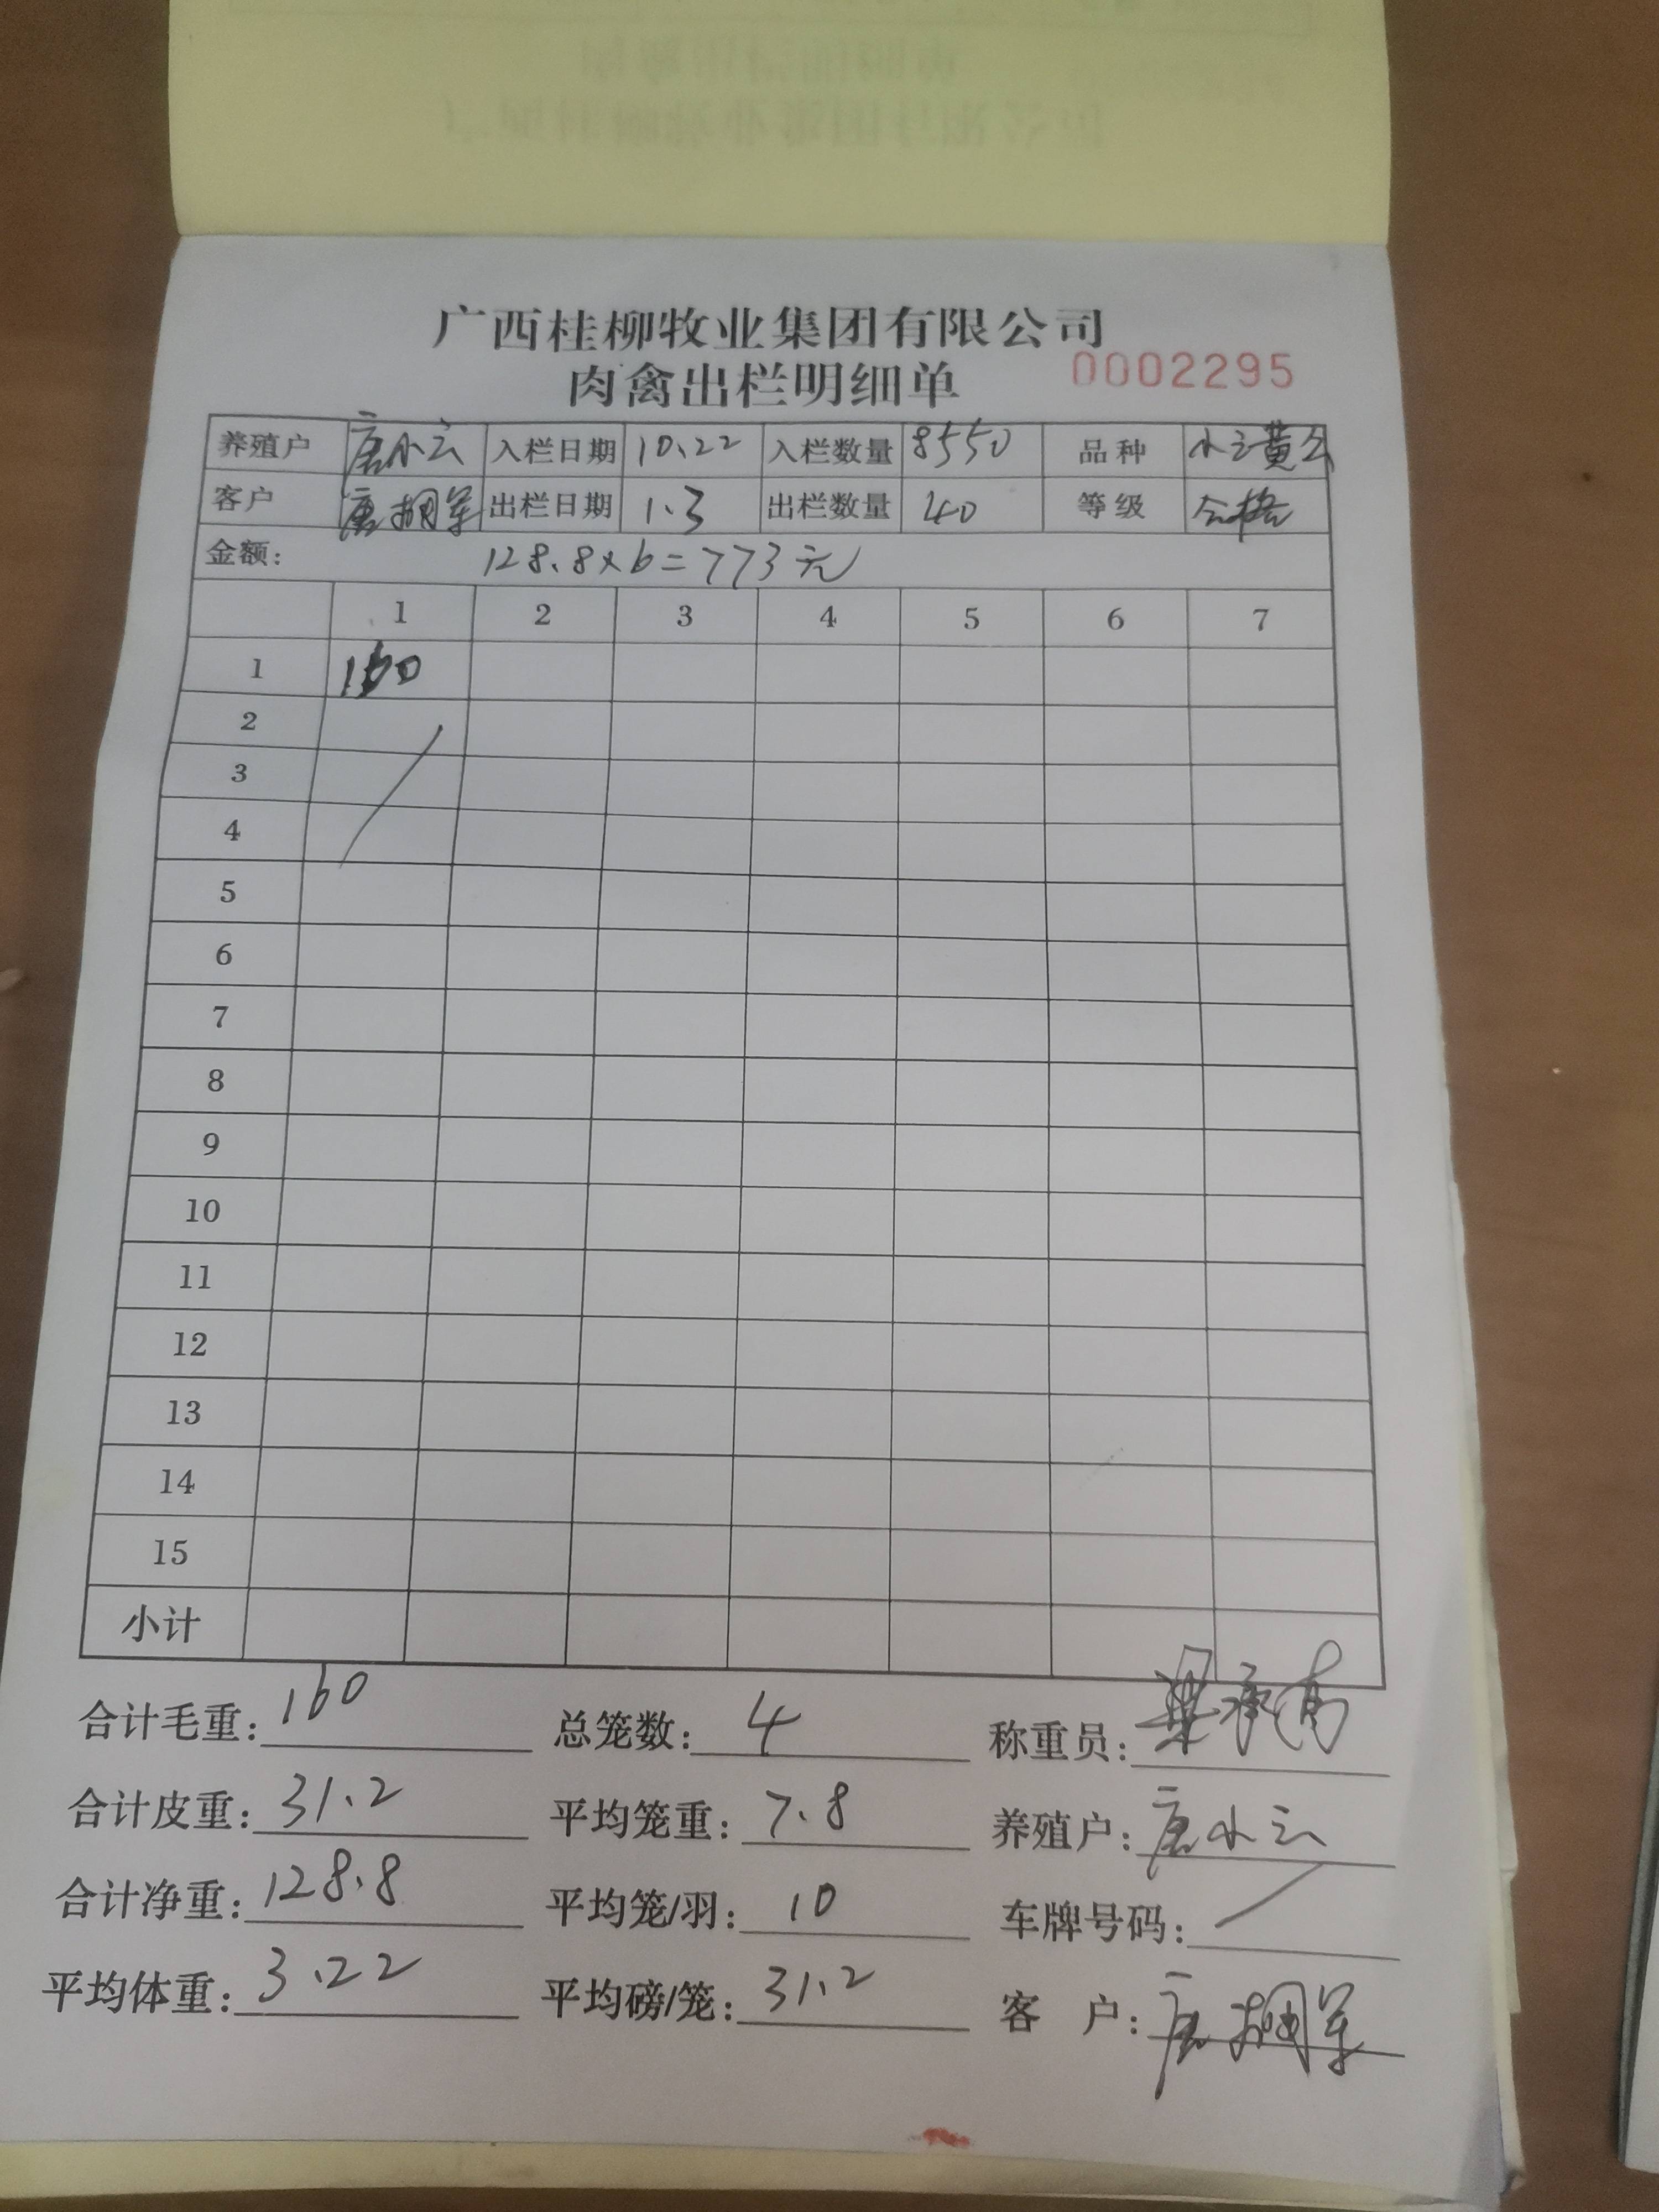 广西桂柳牧业集团有限公司
肉禽出栏明细单 0002295
养殖户 唐小云 入栏日期 10.22 入栏数量 8550 品种
客户 唐 出栏日期 1.3 出栏数量 40 等级 合格
金额: 128.8×6=773元
1 2 3 4 5 6 7
1 160
2
3
4
5
6
7
8
9
10
11
12
13
14
15
小计
合计毛重: 160 总笼数: 4 称重员: 梁
合计皮重: 31.2 平均笼重: 7.8 养殖户: 唐小云
合计净重: 128.8 平均笼/羽: 10 车牌号码: /
平均体重: 3.22 平均磅/笼: 31.2 客 户: 唐